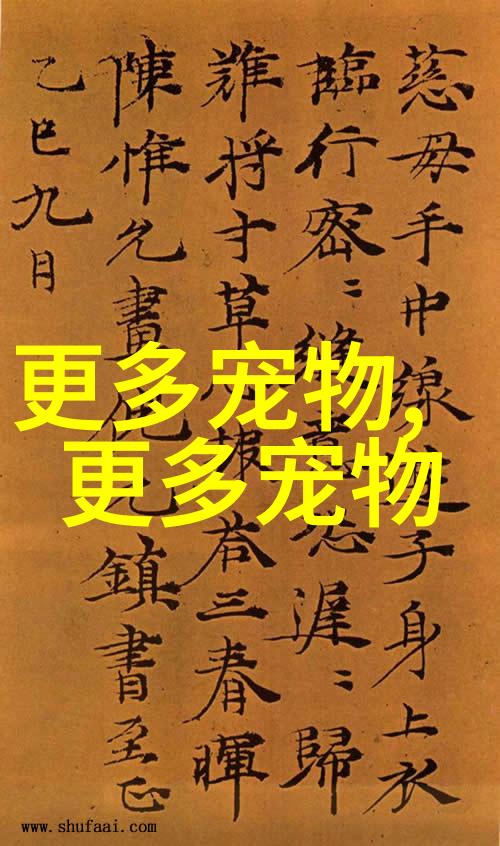 更多宠物,
更多宠物
慈母手中線遊子身上衣
臨行密〻縫意恐遲〻歸
難將寸草心報荅三春暉
陳惟允畫倪元鎮書至正
乙巳九月
www.shufaai.com